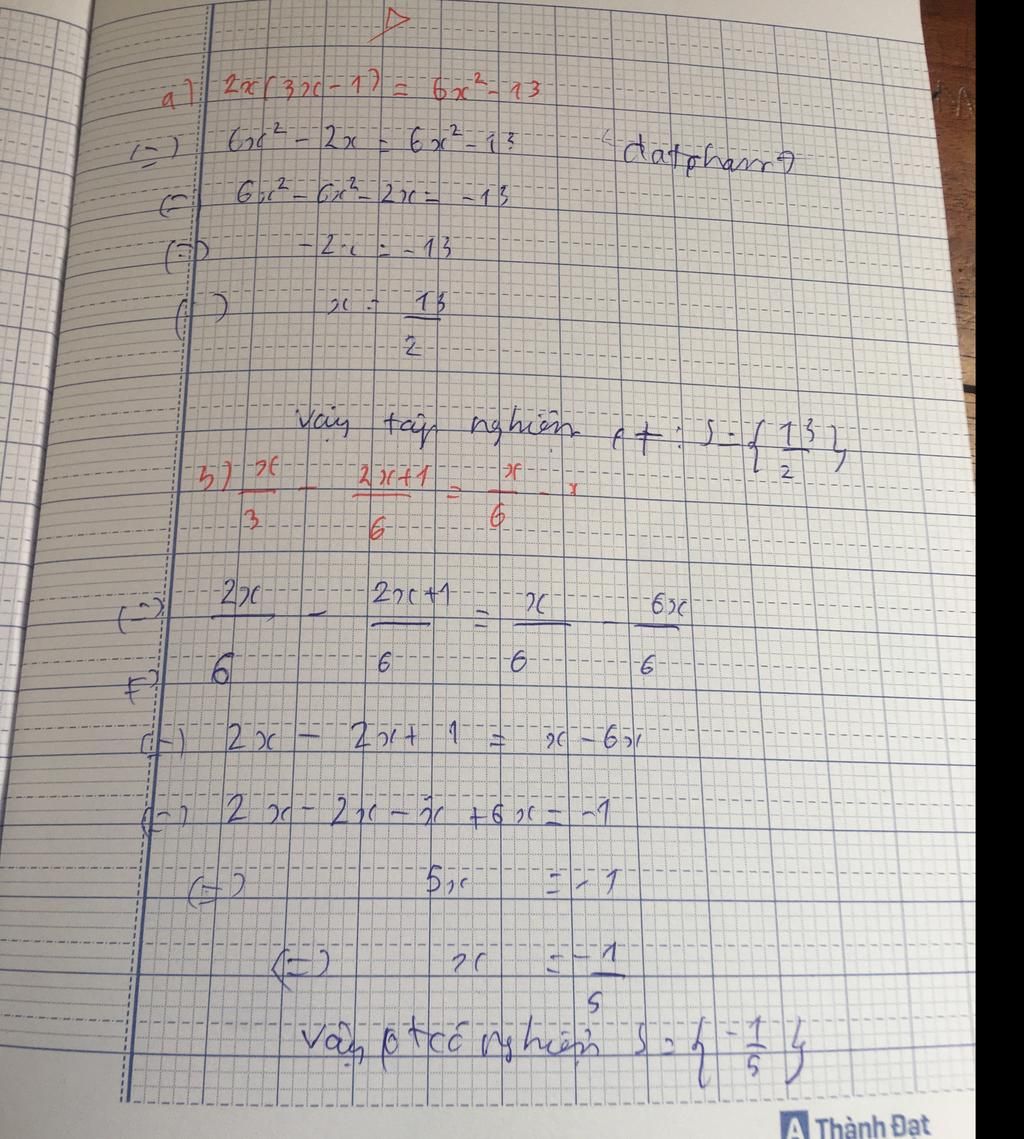 a) 2x(3x-1) = 6x² - 13
(=) 6x² - 2x = 6x² - 13
(=) 6x² - 6x² - 2x = -13
(=) -2x = -13
(=) x = 13/2
Vậy tập nghiệm pt : S = { 13/2 }
b) x/3 - 2x+1/6 = x/6 - x
(=) 2x/6 - 2x+1/6 = x/6 - 6x/6
(=) 2x - 2x + 1 = x - 6x
(=) 2x - 2x - x + 6x = -1
(=) 5x = -1
(=) x = -1/5
Vậy pt có nghiệm S = { -1/5 }
A Thành Đạt